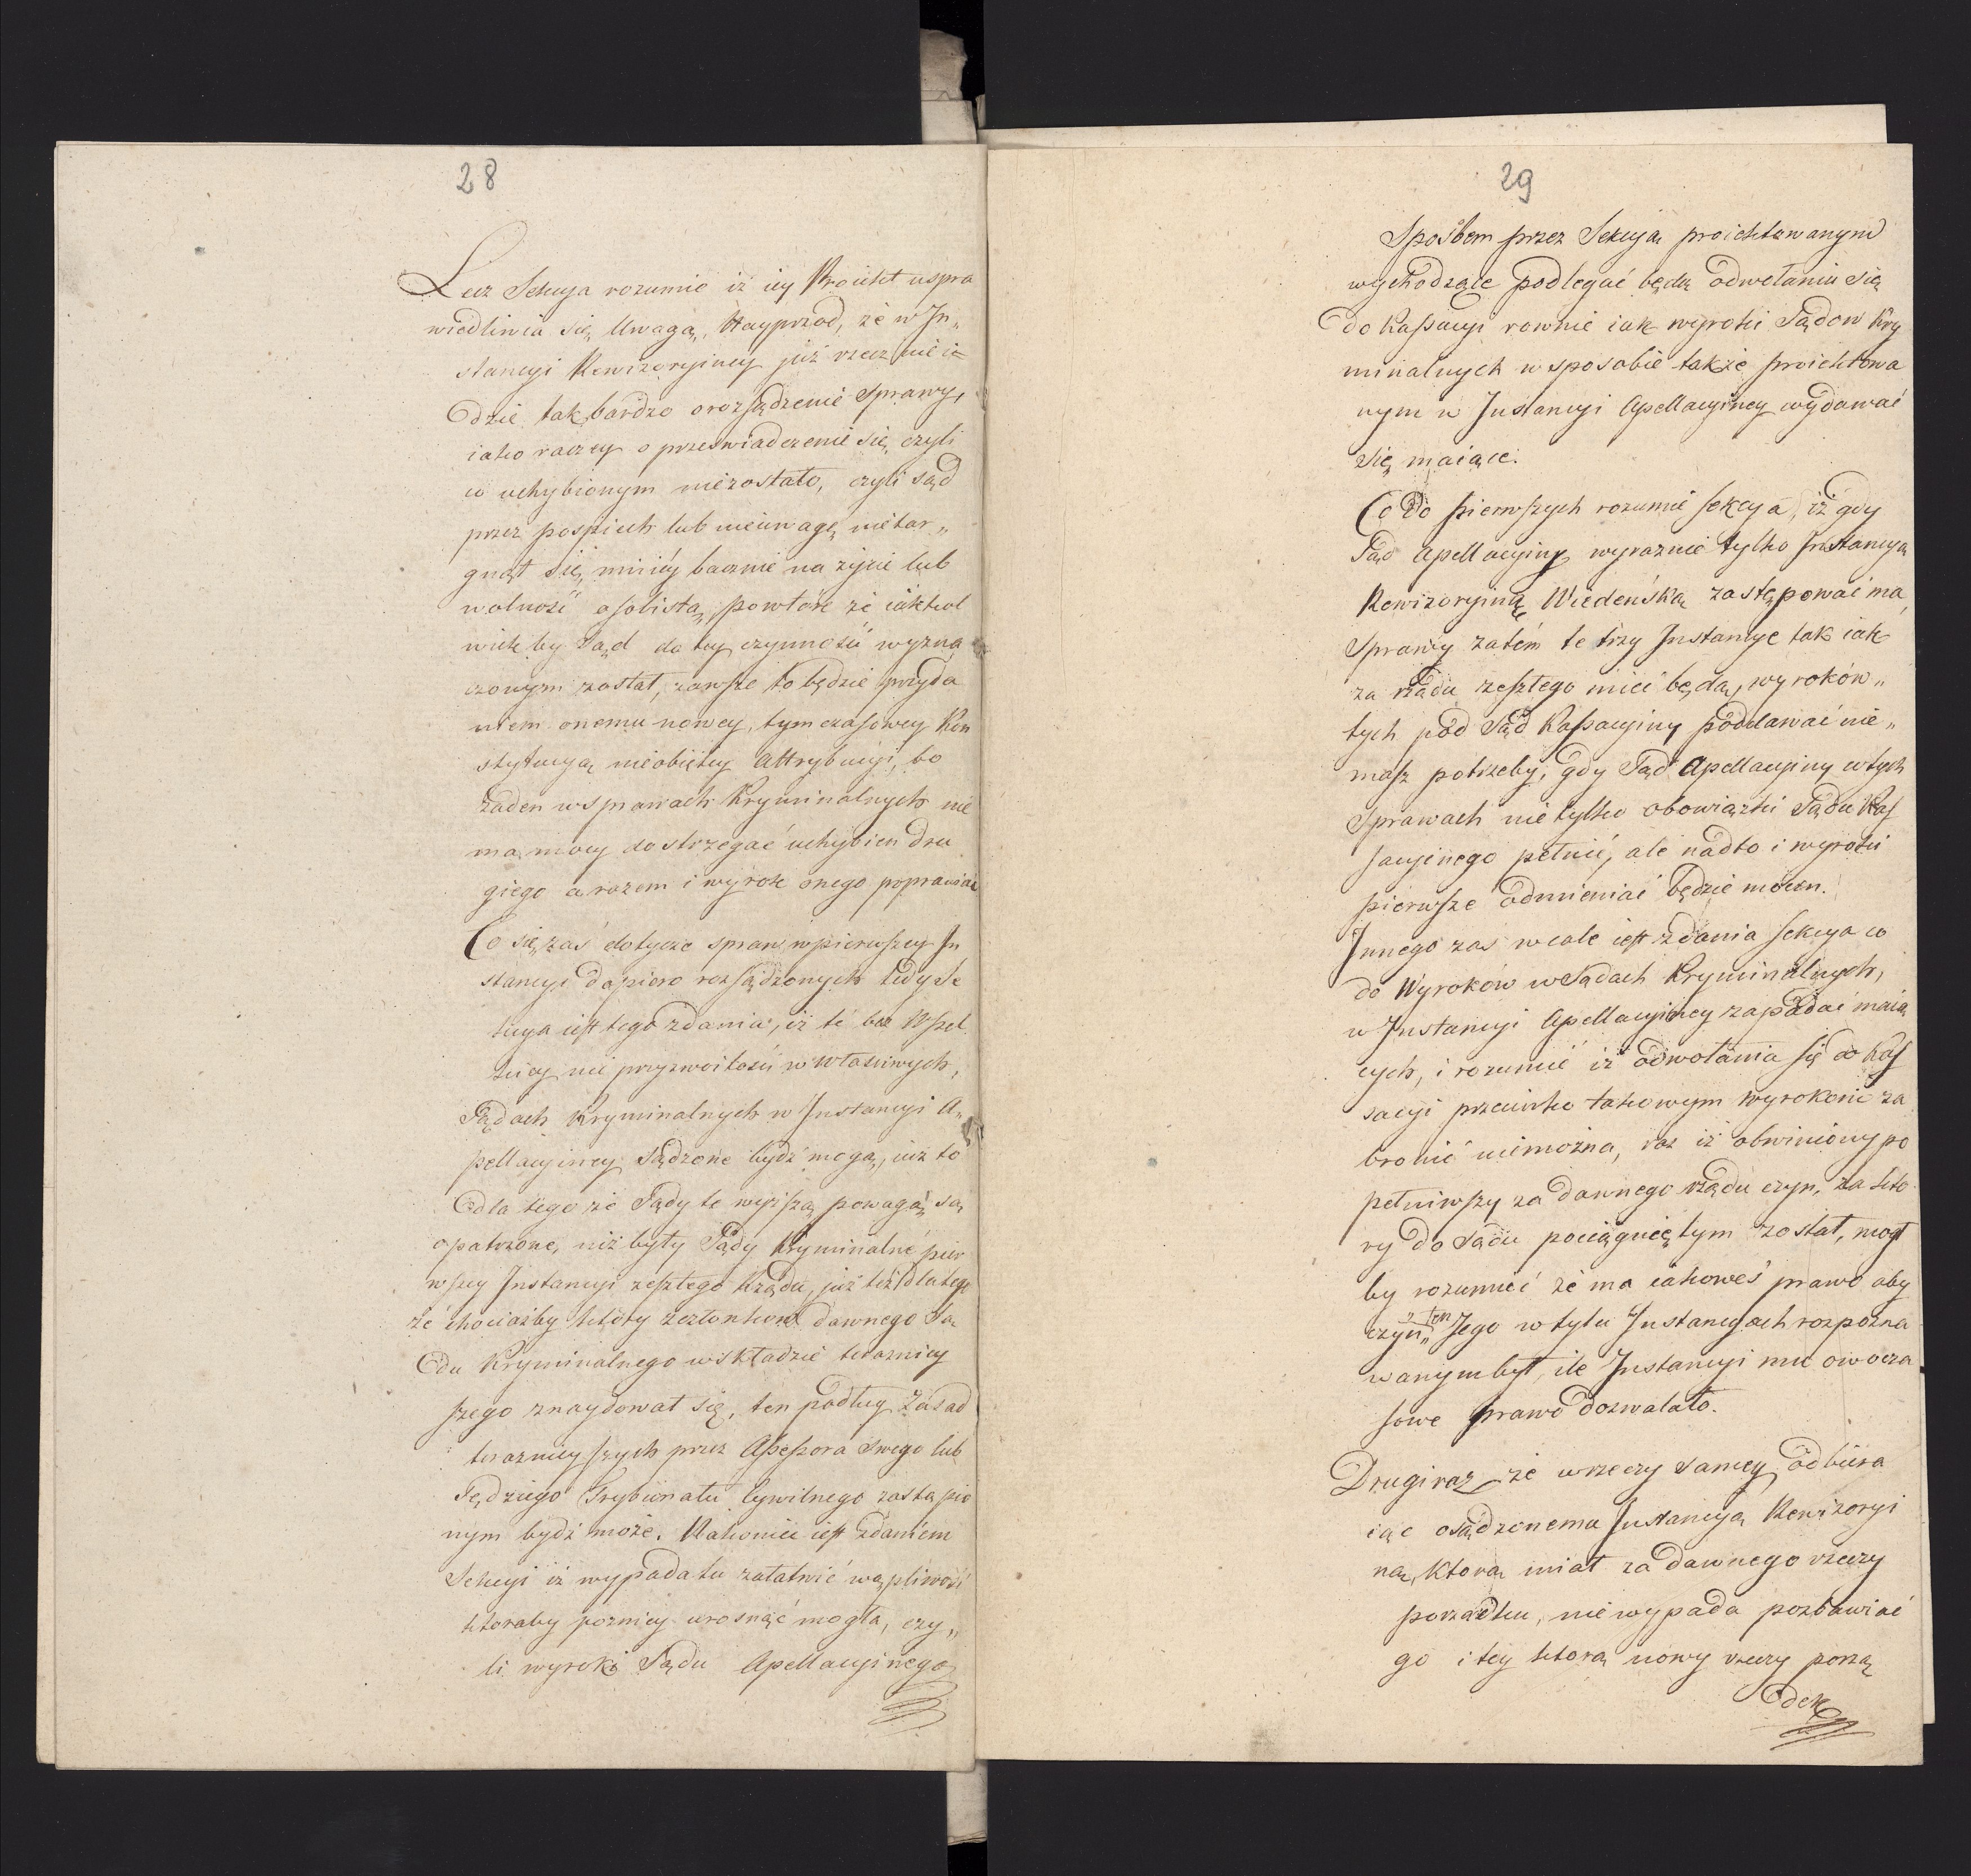 28
Lecz Sekcya rozumie iż iey Proiekt uspra
wiedliwia się Uwagą, Nayprzod, że w In„
stancyi Rewizoryiney już rzecz nie i=
dzie tak bardzo o rozsądzenie sprawy,
iako raczey o przeswiadczenie się, czyli
co uchybionym niezostało, czyli sąd
przez pospiech lub nieuwagę nietar„
gnął się mniéy bacznie na życie lub
wolność osobistą, powtóre że iakikol
wiek by Sąd do tey czynności wyzna
czonym został, zawsze to będzie przyda
niem onemu nowey, tymczasowey Kon
stytucyą nieobiętey Attrybucyi, bo
żaden w sprawach Kryminalnych nie
ma mocy dostrzegać uchybien dru
giego a razem i wyrok onego poprawiać
Co się zaś dotycze spraw w pierwszey In
stancyi dopiero rozsądzonych tedy Se
kcya iest tego zdania, iż te bez wszel
kiey nie przyzwoitości w właściwych,
Sądach Kryminalnych w Instancyi A„
pellacyiney sądzone bydź mogą, iuż to
dla tego że Sądy te wyższą powagą są
opatrzone, niż były Sądy Kryminalne pier
wszey Instancyi zeszłego Rządu, już też dlatego
że chociażby który z członkow dawnego Są
du Kryminalnego w składzie teraźniey
szego znaydował się, ten podług zasad
teraźnieyszych przez Assessora swego lub
Sędziego Trybunału Cywilnego zastąpio
nym bydź może. Nakoniec iest zdaniem
Sekcyi iż wypada tu załatwić wątpliwość
ktoraby pozniey urosnąć mogła, czy„
li wyroki Sądu Apellacyinego
29
Sposobem przez Sekcyą proiektowanym
wychodzące podlegać będą odwołaniu się
do Kassacyi rownie iak wyroki Sądow Kry
minalnych w sposobie także proiektowa
nym w Instancyi Apellacyiney wydawać
się maiące.
Co do pierwszych rozumie sekcya, iż gdy
Sąd Apellacyiny wyraznie tylko Instancyą
Rewizoryiną Wiedeńską zastępować ma,
Sprawy zatém te trzy Instancye tak iak
za rządu zeszłego mieć będą, wyroków„
tych pod Sąd Kassacyiny poddawać nie„
masz potrzeby, gdy Sąd Apellacyiny w tych
Sprawach nie tylko obowiązki Sądu Kas
sacyinego pełnić, ale nadto i wyroki
pierwsze odmieniać będzie mocen.
Innego zas wcale iest zdania sekcya co
do Wyroków w Sądach Kryminalnych,
w Instancyi Apellacyiney zapadać maią
cych, i rozumie iż odwołania się do Kas
sacyi przeciwko takowym wyrokom za
bronić niemożna, raz iż obwiniony po
pełniwszy za dawnego rządu czyn, za kto
ry do Sądu pociągniętym został, mogł
by rozumieć że ma iakoweś prawo aby
czyn„ ten Jego w tylu Instancyach rozpozna
wanym był, ile Instancyi mu owocza
sowe prawo dozwalało.
Drugi raz że w rzeczy samey odbiera
iąc osądzonemu Instancyą Rewizoryi
ną, ktorą miał za dawnego rzeczy
porządku, nie wypada pozbawiać
go i tey ktorą nowy rzeczy porzą
dek